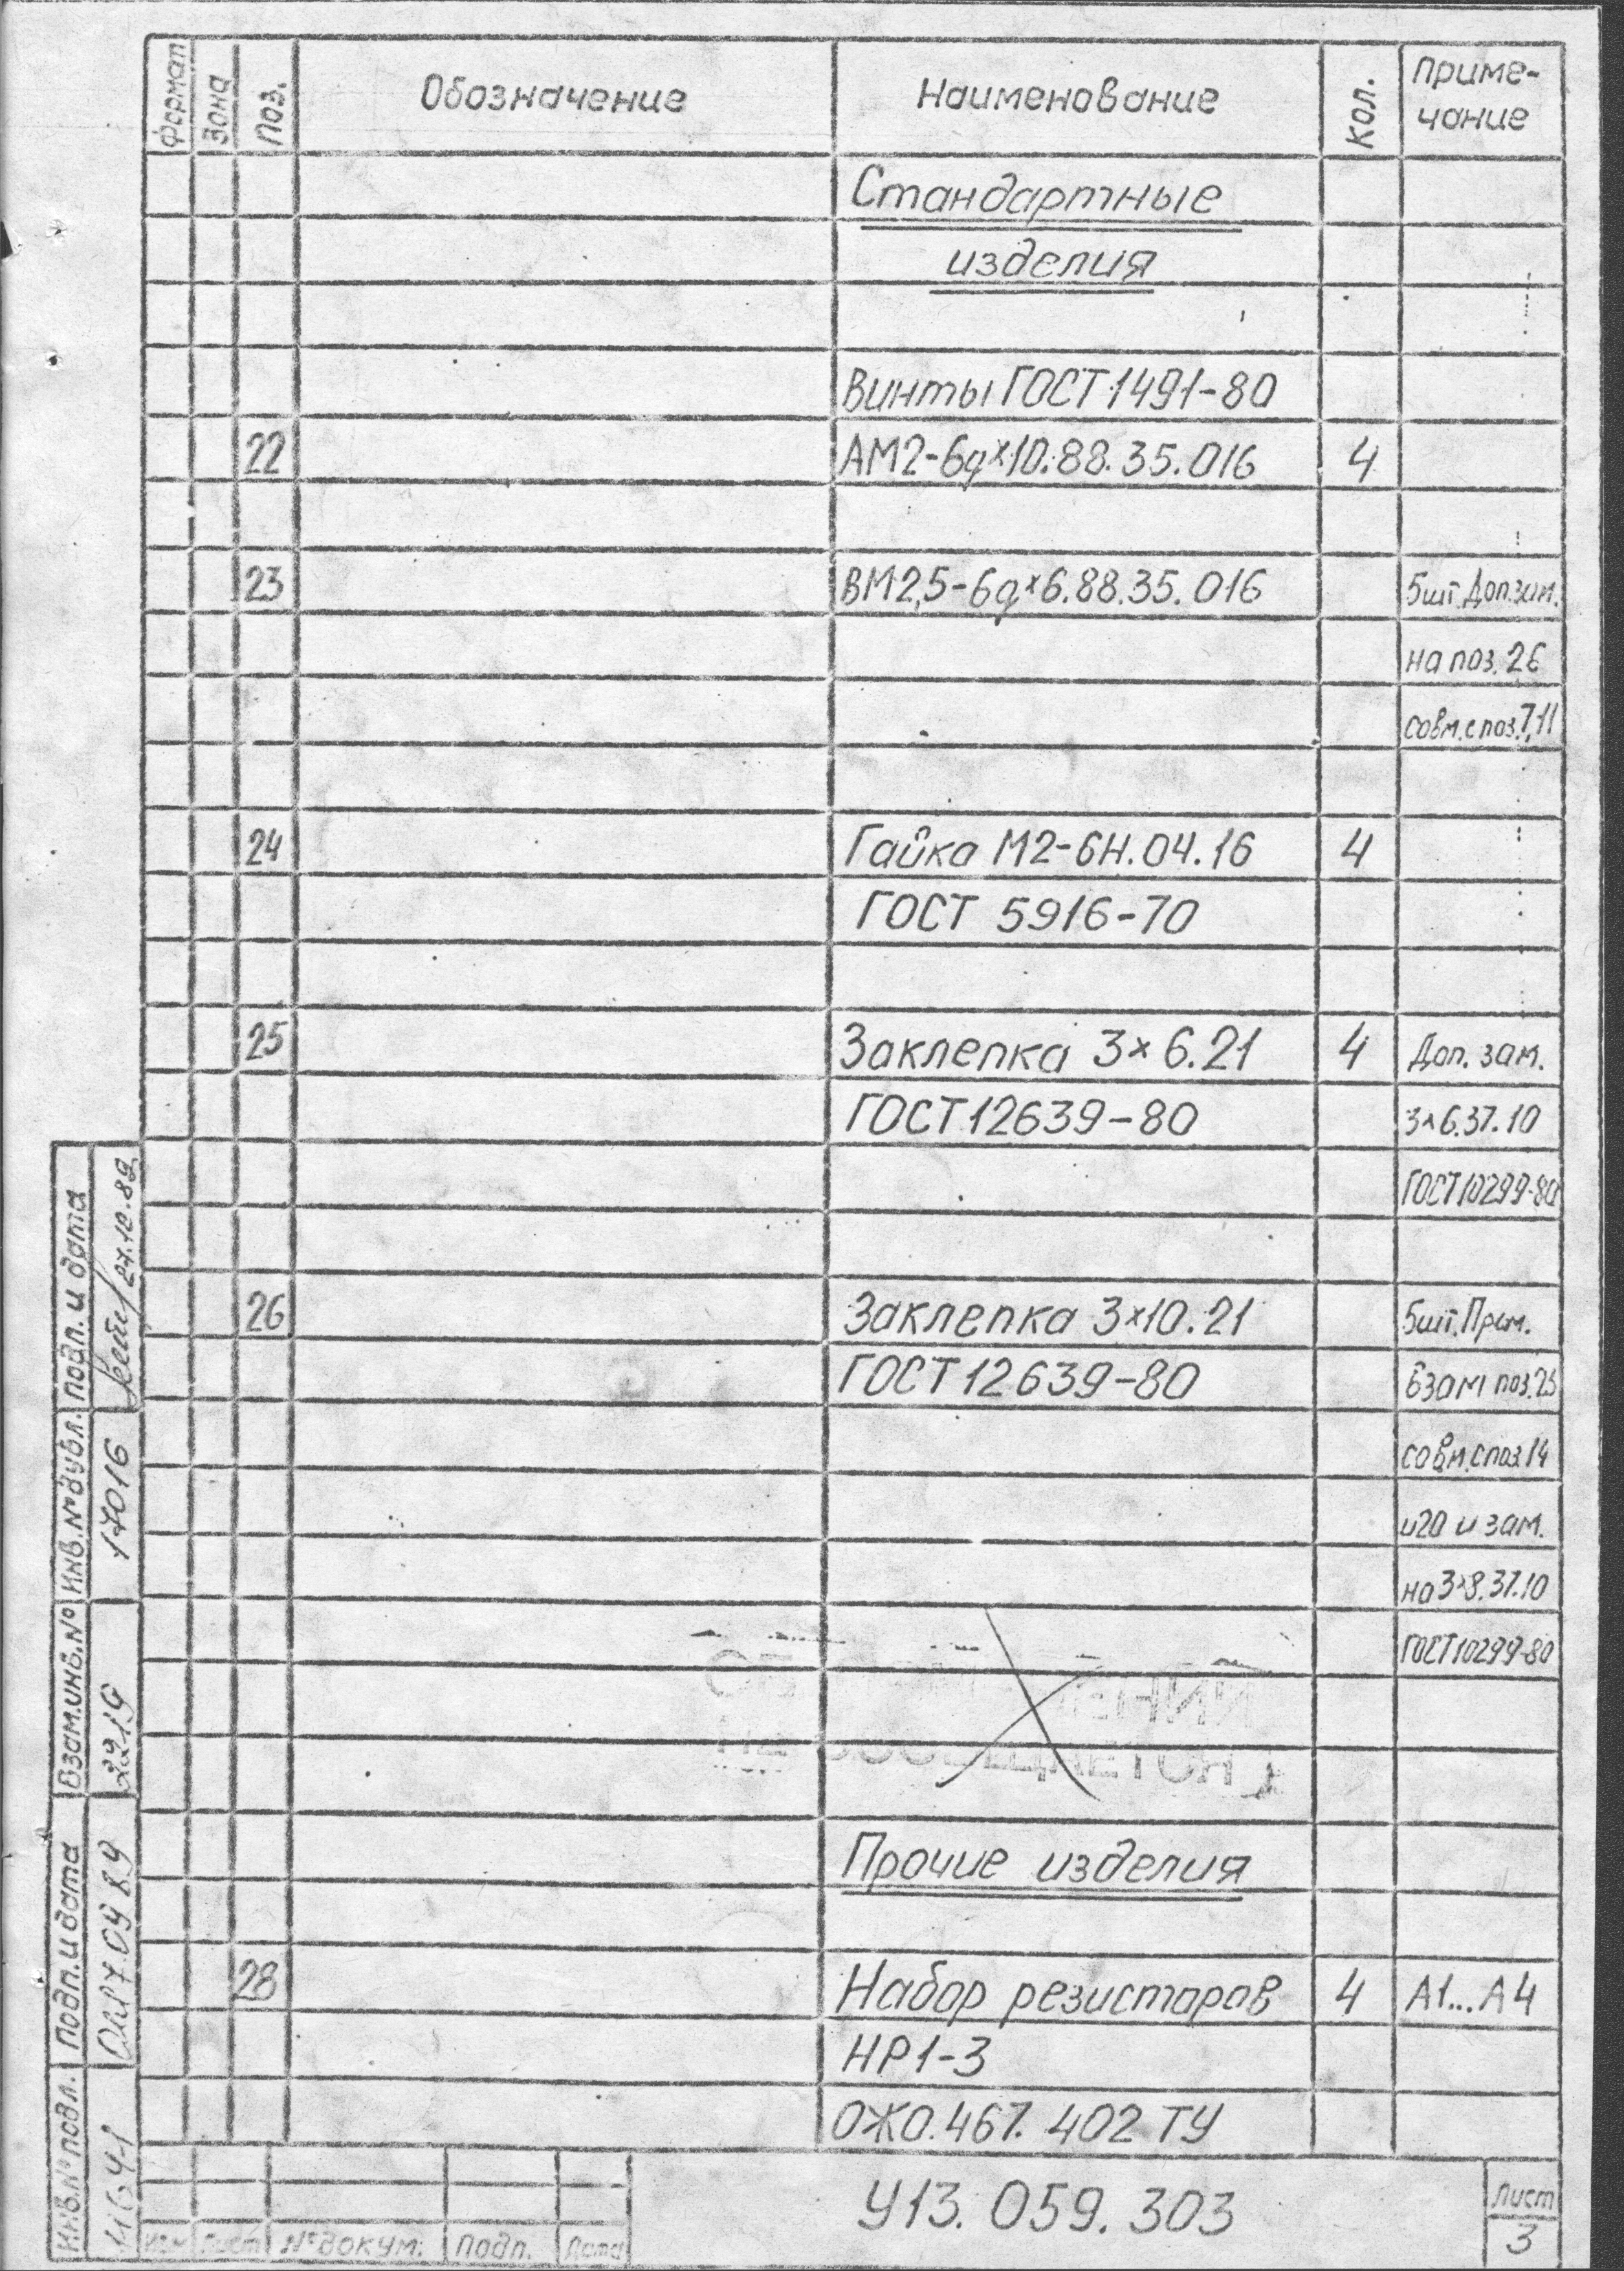 Формат Зона Поз. Обозначение Наименование Кол. Приме-
чание
Стандартные
изделия
Винты ГОСТ 1491-80
22 АМ2-6g×10.88.35.016 4
23 ВМ2,5-6g×6.88.35.016 5шт. Доп.зам.
на поз. 26
совм. с поз. 7,11
24 Гайка М2-6Н.04.16 4
ГОСТ 5916-70
25 Заклепка 3×6.21 4 Доп. зам.
ГОСТ 12639-80 3×6.37.10
ГОСТ 10299-80
26 Заклепка 3×10.21 5шт. Прим.
ГОСТ 12639-80 взам поз. 25
совм. с поз. 14
и 20 и зам.
на 3×8.37.10
ГОСТ 10299-80
Прочие изделия
28 Набор резисторов 4 А1...А4
НР1-3
ОЖ0.467.402 ТУ
Изм Лист № докум. Подп. Дата
У13.059.303
Лист
3
Инв.№ подл. Подп. и дата Взам.инв.№ Инв.№ дубл. Подп. и дата
17016 27.10.89